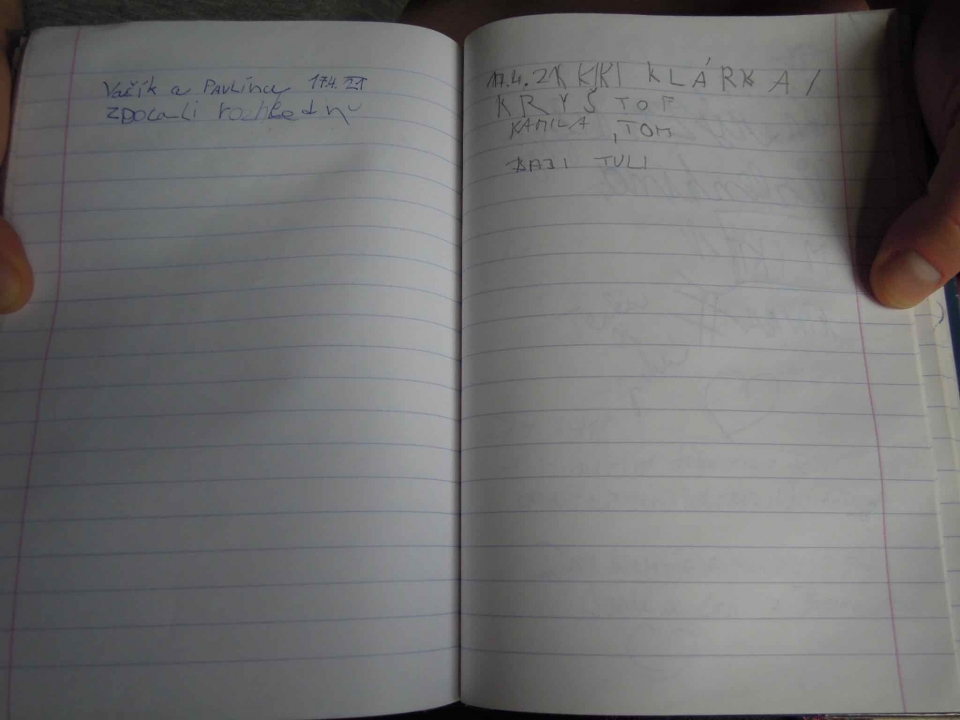 Vašík a Pavlína 17.4. 21
ZDOCALI rozhlednu
17.4.21 KIKI KLÁRKA /
KRYŠTOF
KAMILA , TOM
BAJI JULI